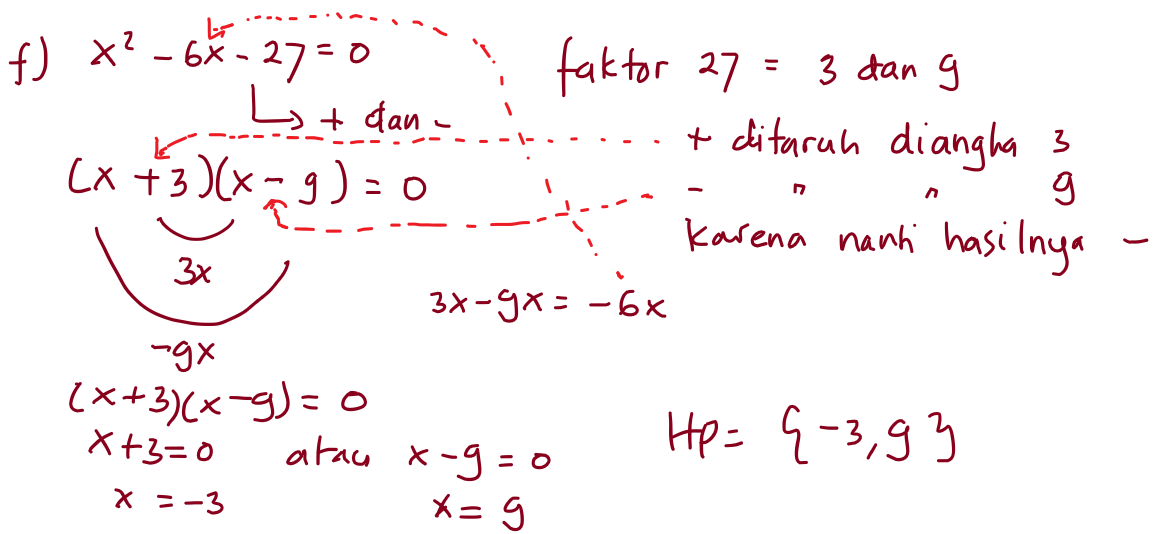 f) x² - 6x - 27 = 0
faktor 27 = 3 dan 9
+ dan -
+ ditaruh diangka 3
(x + 3)(x - 9) = 0
- " " 9
karena nanti hasilnya -
3x
3x - 9x = -6x
-9x
(x+3)(x-9) = 0
x+3=0 atau x-9=0
Hp= {-3, 9}
x = -3
x = 9